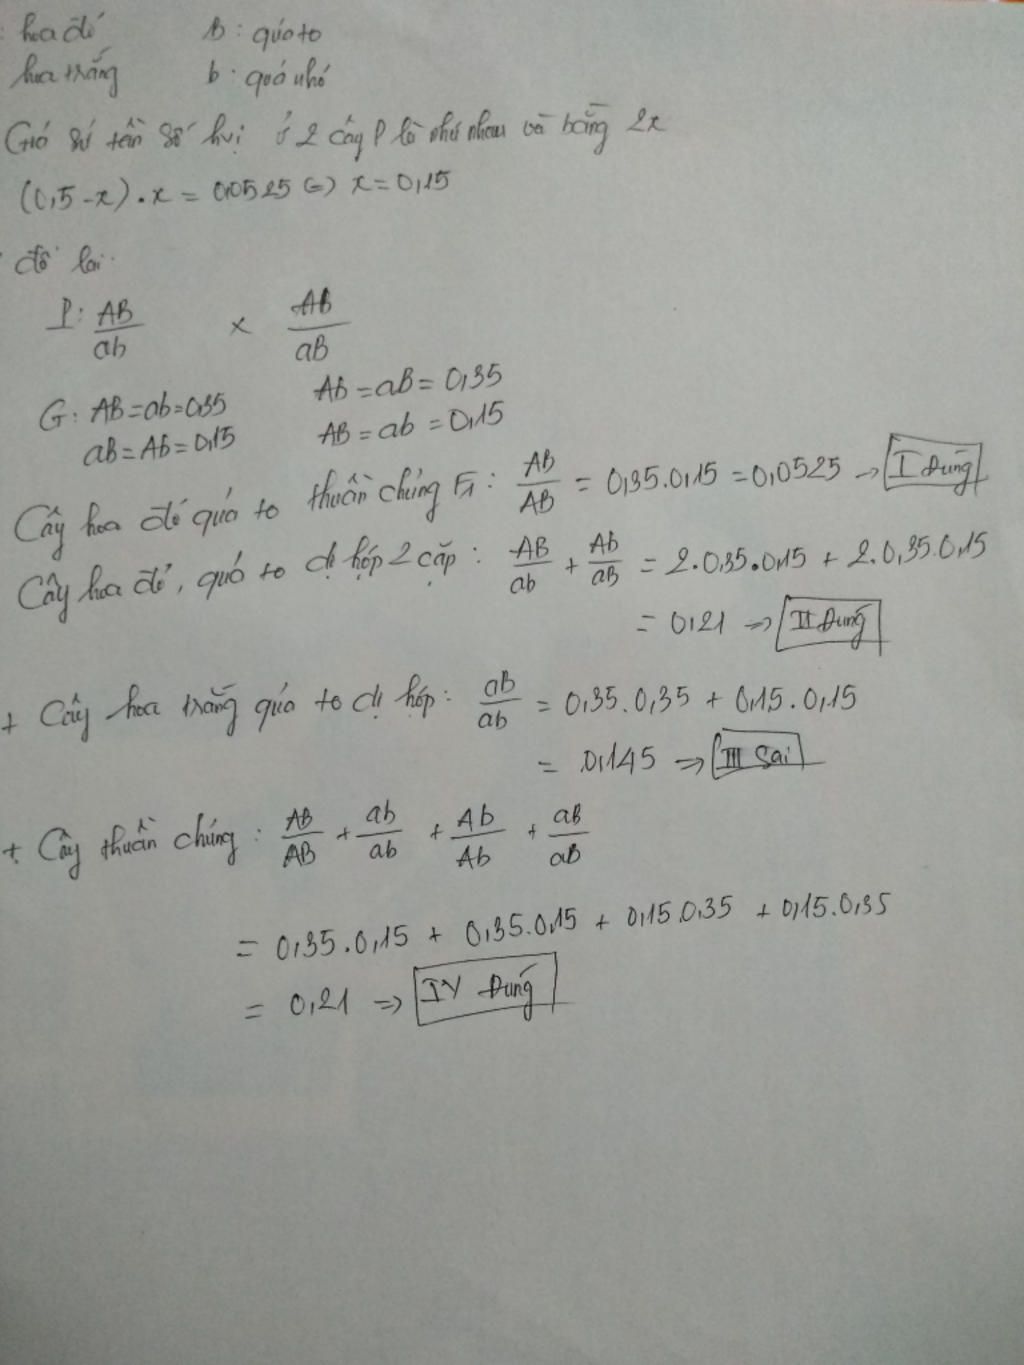 : hoa đỏ B : quả to
hoa trắng b : quả nhỏ
Giả sử tần số hvị ở 2 cây P là như nhau và bằng 2x
(0,5 - x) . x = 0,0525 => x = 0,15
đồ lai:
P: AB/ab × Ab/aB
G: AB = ab = 0,35 Ab = aB = 0,35
aB = Ab = 0,15 AB = ab = 0,15
Cây hoa đỏ quả to thuần chủng F1 : AB/AB = 0,35.0,15 = 0,0525 → I Đúng
Cây hoa đỏ, quả to dị hợp 2 cặp : AB/ab + Ab/aB = 2.0,35.0,15 + 2.0,35.0,15
= 0,21 => II Đúng
+ Cây hoa trắng quả to dị hợp: ab/ab = 0,35.0,35 + 0,15.0,15
= 0,145 => III Sai
+ Cây thuần chủng : AB/AB + ab/ab + Ab/Ab + aB/aB
= 0,35.0,15 + 0,35.0,15 + 0,15.0,35 + 0,15.0,35
= 0,21 => IV Đúng